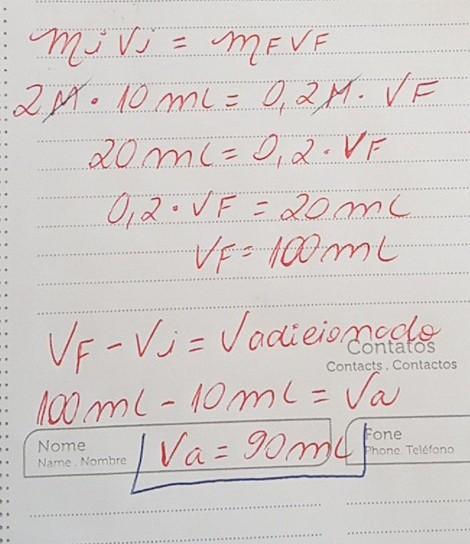 Mi Vi = MF VF
2M · 10 ml = 0,2M · VF
20 ml = 0,2 · VF
0,2 · VF = 20 ml
VF = 100 ml
VF - Vi = Vadicionado
Contatos
Contacts . Contactos
100 ml - 10 ml = Va
Nome
Name . Nombre
Va = 90 ml
Fone
Phone. Teléfono